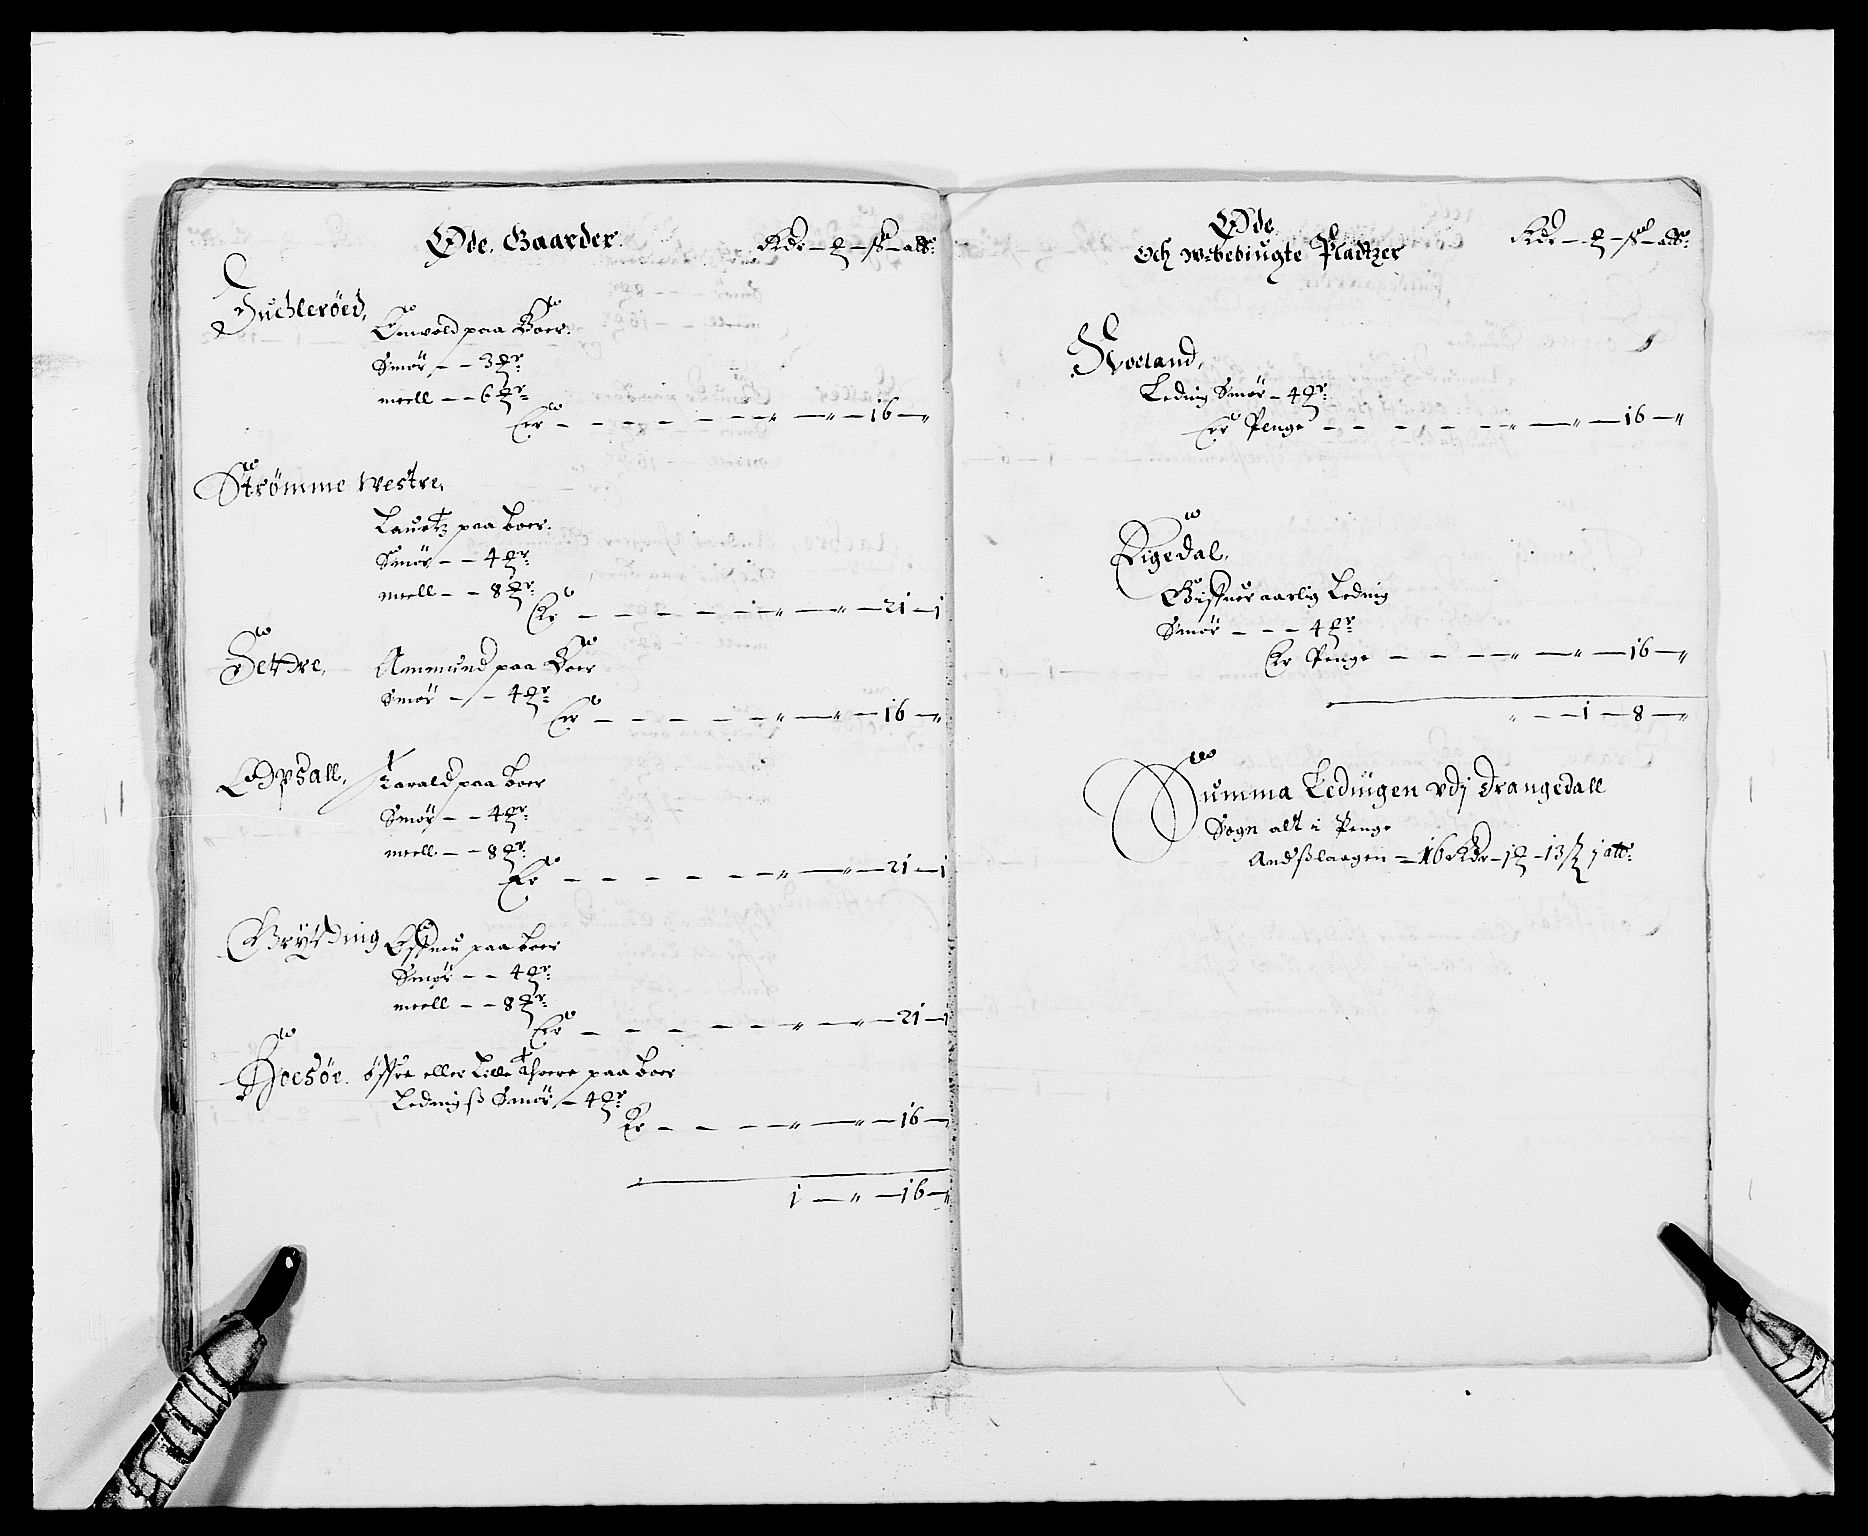 Øde. Gaarder. Rdr — ℔ — ß — alb:
Huchlerøed,
Enwold paa Boer.
Smør, — — 3 ℔r:
meell — — 6 ℔r:
Er — — — — — — " — " — 16 — "
Strømme westre,
Lauritz paa boer.
Smør — — 4 ℔r:
meell — — 8 ℔r:
Er — — — — — " — " — 21 — 1
Ammund paa Boer
Smør — — 4 ℔r:
Er — — — — — " — " — 16 — "
Lofdsall, Tarald paa boer
Smør — — 4 ℔r:
meell — — 8 ℔r:
Er — — — — — " — " — 21 — 1
Grytding paa boer
Smør — — 4 ℔r:
meell — — 8 ℔r:
Er — — — — — " — " — 21 — 1
Hoesøe. øffre eller Lille paa boer
Ledingß Smør — 4 ℔r:
Er — — — " — " — 16 —
1 — " — 16 — "
Øde
Och wbebiugte Pladtzer Rdr — ℔ — ß — alb:
Leding Smør — 4 ℔r:
Er Penge — — — — — " — " — 16 — "
Eigedal,
Giffuer aarlig Leding
Smør — — — 4 ℔r:
Er Penge — — — " — " — 16 — "
" — — 1 — 8 — "
Summa Ledingen vdj Drangedall
Sogn alt i Penge
Andßlaugen — 16 Rdr — 1 ℔ — 13 ß 1 alb: